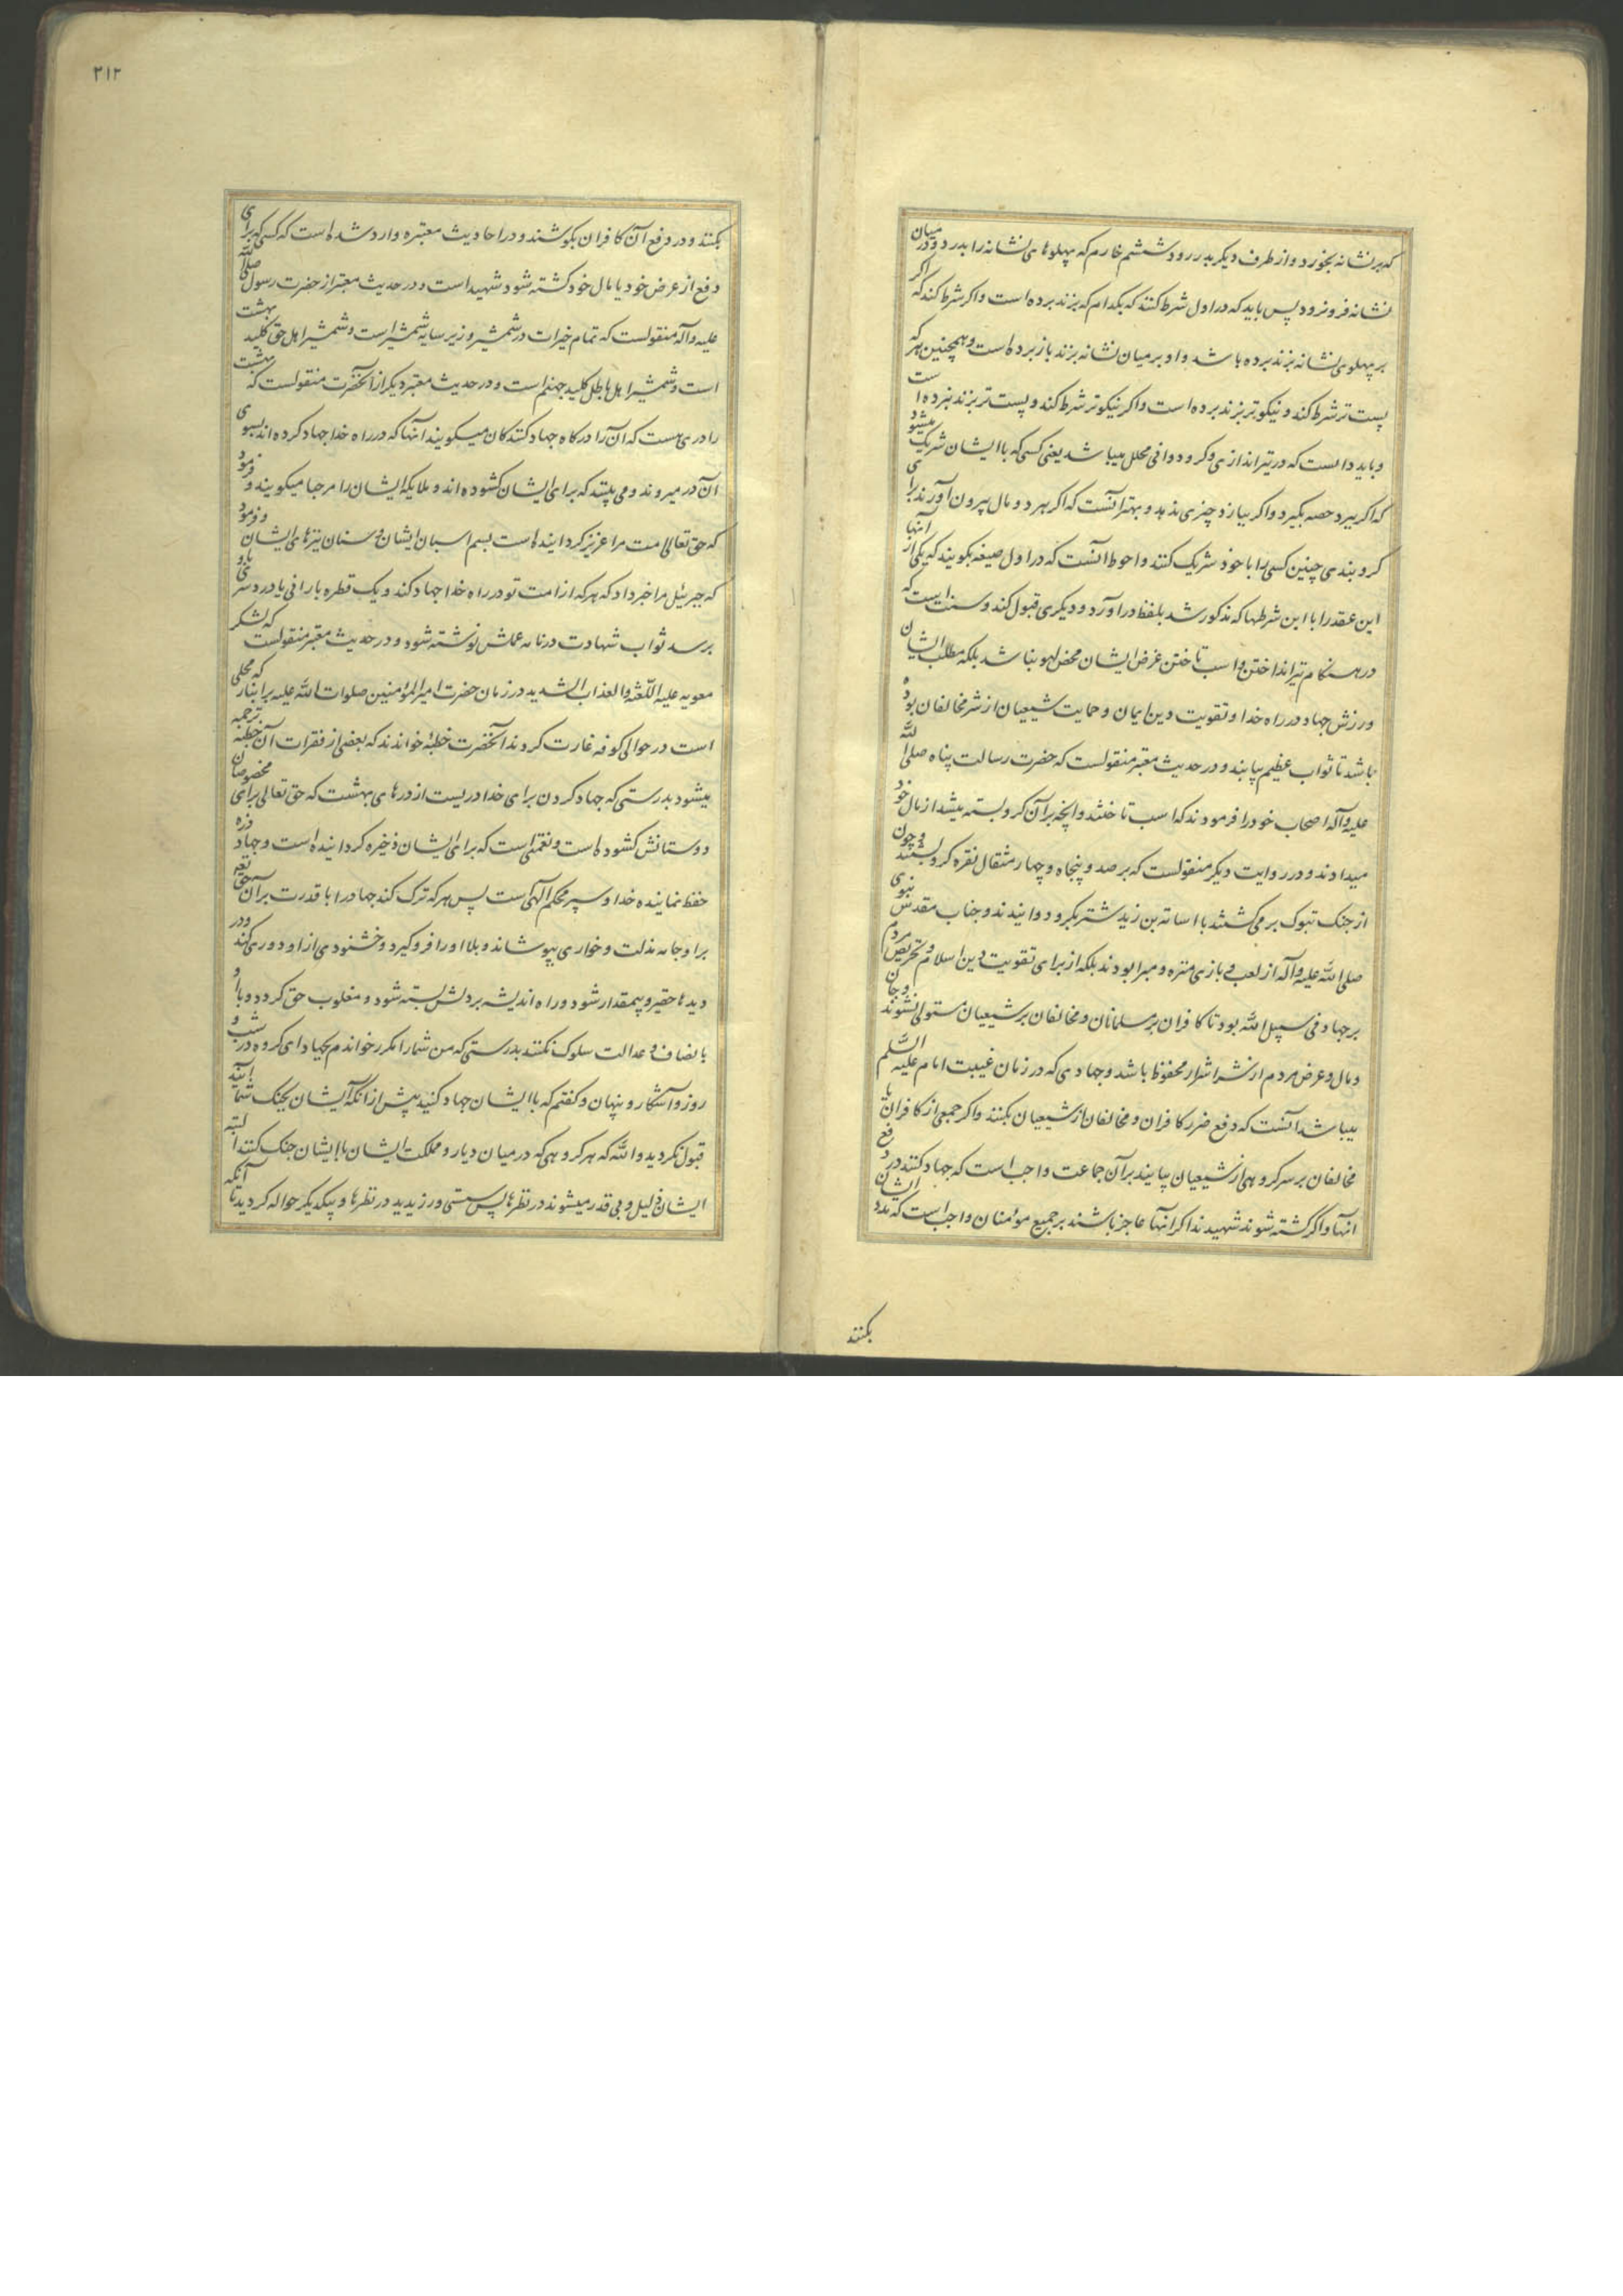 که بر نشانه بخورد و از طرف دیگر بدر رود ششم خارم که پهلوهای نشانه را بدرد و در میان
نشانه فرو نرود پس باید که در اول شرط کنند که بکدام که بزند برده است و اکر شرط کند که اکر
بر پهلوی نشانه بزند برده باشد و او بر میان نشانه بزند باز برده است و همچنین هر که
پست تر شرط کند و نیکوتر بزند برده است و اکر نیکوتر شرط کند و پست تر بزند نبرده است
و باید دانست که در تیراندازی و کرو دوانی محلل میباشد یعنی کسی که با ایشان شریک میشود
که اکر ببرد حصه بکیرد و اکر ببازد چیزی ندهد و بهتر آنست که اکر هر دو مال بیرون آورند برای
کروبندی چنین کسی را با خود شریک کنند و احوط آنست که در اول صیغه بکویند که یکی از آنها
این عقد را با این شرطها که مذکور شد بلفظ در آورد و دیکری قبول کند و سنت است که
در هنکام تیر انداختن و اسب تاختن غرض ایشان محض لهو نباشد بلکه مطلب ایشان
ورزش جهاد در راه خدا و تقویت دین ایمان و حمایت شیعیان از شر مخالفان بوده
باشد تا ثواب عظیم بیابند و در حدیث معتبر منقولست که حضرت رسالت پناه صلی الله
علیه و آله اصحاب خود را فرمودند که اسب تاختند و آنچه بر آن کرو بسته میشد از مال خود
میدادند و در روایت دیکر منقولست که بر صد و پنجاه و چهار مثقال نقره کرو بستند و چون
از جنک تبوک بر می کشتند با اسامه بن زید شتر بکرو دوانیدند و جناب مقدس نبوی
صلی الله علیه و آله از لعب و بازی منزه و مبرا بودند بلکه از برای تقویت دین اسلام و تحریص مردم
بر جهاد فی سبیل الله بود تا کافران بر مسلمانان و مخالفان بر شیعیان مستولی نشوند و جان
و مال و عرض مردم از شر اشرار محفوظ باشد و جهادی که در زمان غیبت امام علیه السلم
میباشد آنست که دفع ضرر کافران و مخالفان از شیعیان بکنند و اکر جمعی از کافران یا
مخالفان بر سر کروهی از شیعیان بیایند بر آن جماعت واجب است که جهاد کنند در دفع
آنها و اکر کشته شوند شهیدند و اکر آنها عاجز باشند بر جمیع مؤمنان واجب است که مدد ایشان
بکنند
۲۱۲
بکنند و در دفع آن کافران بکوشند و در احادیث معتبره وارد شده است که کسی که برای
دفع از عرض خود یا مال خود کشته شود شهید است و در حدیث معتبر از حضرت رسول صلی الله
علیه و آله منقولست که تمام خیرات در شمشیر و زیر سایه شمشیر است و شمشیر اهل حق کلید بهشت
است و شمشیر اهل باطل کلید جهنم است و در حدیث معتبر دیکر از آنحضرت منقولست که بهشت
را دری هست که آن را درکاه جهاد کنندکان میکویند آنها که در راه خدا جهاد کرده اند بسوی
آن در میروند و می بینند که برای ایشان کشوده اند و ملایکه ایشان را مرحبا میکویند و فرمود
که حق تعالی امت مرا عزیز کردانیده است بسم اسبان ایشان و سنان نیزهای ایشان و فرمود
که جبرئیل مرا خبر داد که هر که از امت تو در راه خدا جهاد کند و یک قطره بارانی یا درد سری باو
برسد ثواب شهادت در نامه عملش نوشته شود و در حدیث معتبر منقولست که لشکر
معویه علیه اللعنة و العذاب الشدید در زمان حضرت امیر المؤمنین صلوات الله علیه بر انبار که محلی
است در حوالی کوفه غارت کردند آنحضرت خطبهٔ خواندند که بعضی از فقرات آن خطبه ترجمه
میشود بدرستی که جهاد کردن برای خدا دریست از درهای بهشت که حق تعالی برای مخصوصان
دوستانش کشوده است و نعمتی است که برای ایشان ذخیره کردانیده است و جهاد زره
حفظ نماینده خدا و سپر محکم الهی است پس هر که ترک کند جهاد را با قدرت بر آن حق تعه
بر او جامه مذلت و خواری بپوشاند و بلا او را فرو کیرد و خشنودی از او دوری کند و در
دیدها حقیر و بیمقدار شود و راه اندیشه بر دلش بسته شود و مغلوب حق کردد و با او
بانصاف و عدالت سلوک نکنند بدرستی که من شما را مکرر خواندم بجهاد ای کروه در شب و
روز و آشکار و پنهان و کفتم که با ایشان جهاد کنید پیش از آنکه ایشان بجنک شما آیند
قبول نکردید و الله که هر کروهی که در میان دیار و مملکت ایشان با ایشان جنک کنند البته
ایشان ذلیل و بی قدر میشوند در نظرها پس سستی ورزیدید در نظرها و بیکدیکر حواله کردید تا آنکه